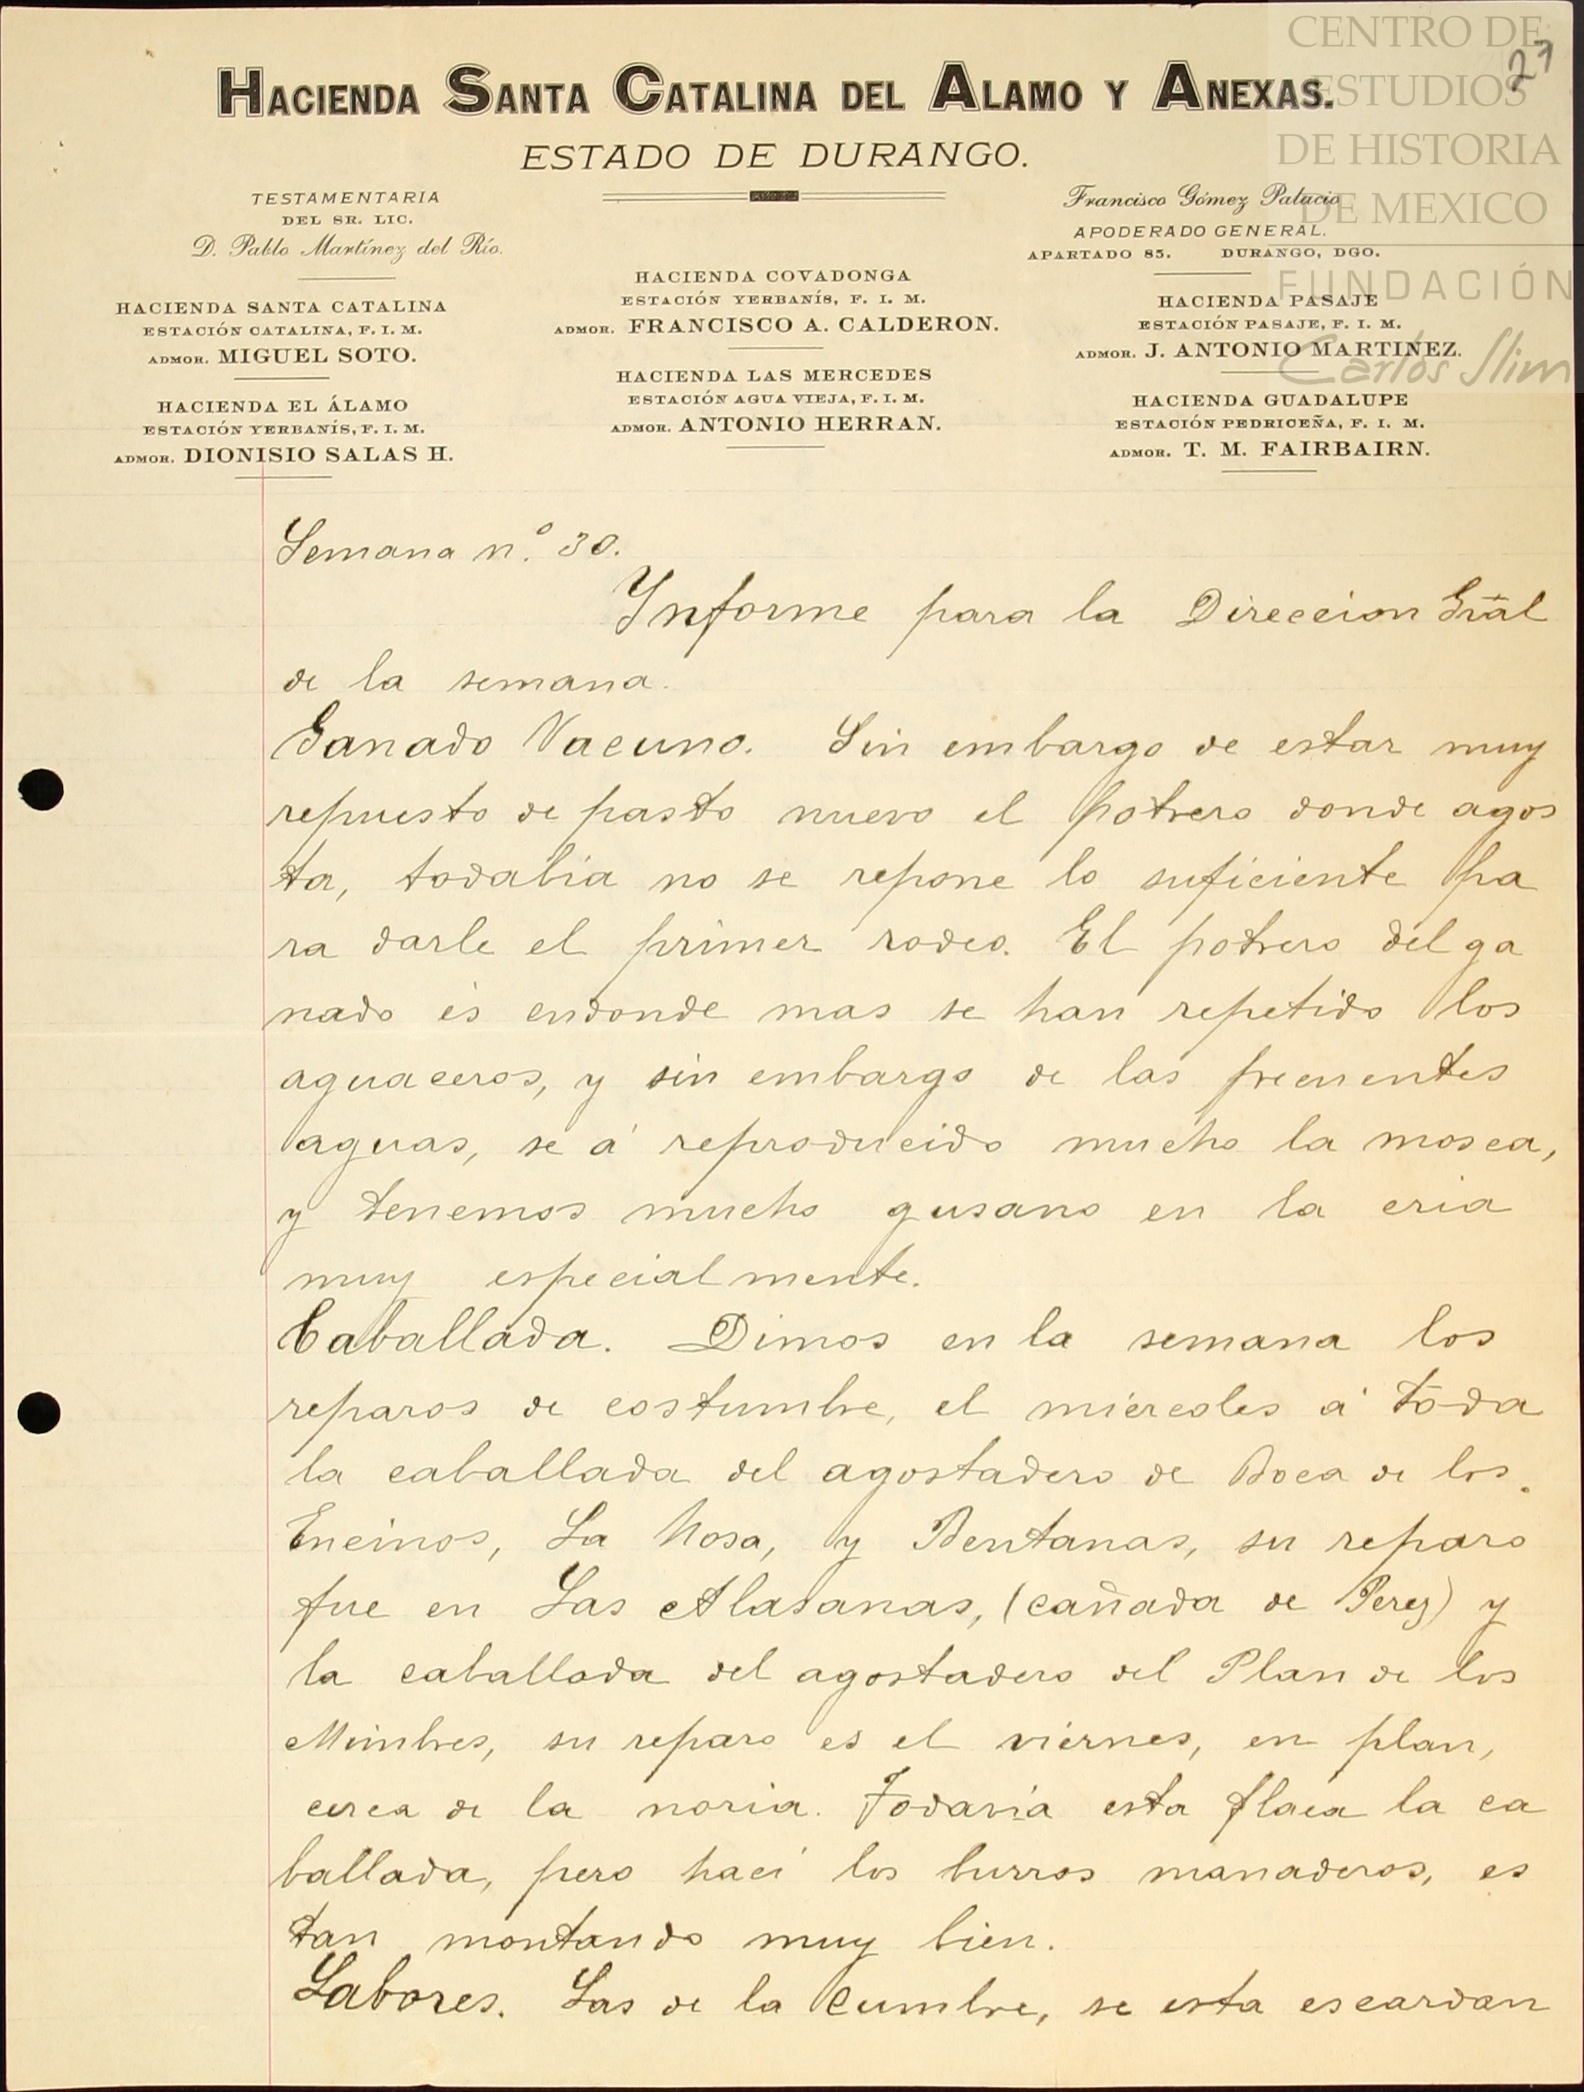 CENTRO DE
ESTUDIOS
DE HISTORIA
DE MEXICO
FUNDACIÓN
Carlos Slim
27
HACIENDA SANTA CATALINA DEL ALAMO Y ANEXAS.
ESTADO DE DURANGO.
TESTAMENTARIA
DEL SR. LIC.
D. Pablo Martínez del Río.
HACIENDA SANTA CATALINA
ESTACIÓN CATALINA, F. I. M.
ADMOR. MIGUEL SOTO.
HACIENDA EL ÁLAMO
ESTACIÓN YERBANÍS, F. I. M.
ADMOR. DIONISIO SALAS H.
HACIENDA COVADONGA
ESTACIÓN YERBANÍS, F. I. M.
ADMOR. FRANCISCO A. CALDERON.
HACIENDA LAS MERCEDES
ESTACIÓN AGUA VIEJA, F. I. M.
ADMOR. ANTONIO HERRAN.
Francisco Gómez Palacio
APODERADO GENERAL.
APARTADO 85. DURANGO, DGO.
HACIENDA PASAJE
ESTACIÓN PASAJE, F. I. M.
ADMOR. J. ANTONIO MARTINEZ.
HACIENDA GUADALUPE
ESTACIÓN PEDRICEÑA, F. I. M.
ADMOR. T. M. FAIRBAIRN.
Semana n.º 30.
Ynforme para la Direccion Gral
de la semana.
Ganado Vacuno. Sin embargo de estar muy
repuesto de pasto nuevo el potrero donde agos
ta, todabia no se repone lo suficiente pa
ra darle el primer rodeo. El potrero del ga
nado és endonde mas se han repetido los
aguaceros, y sin embargo de las frecuentes
aguas, se á reproducido mucho la mosca,
y tenemos mucho gusano en la cria
muy especialmente.
Caballada. Dimos en la semana los
reparos de costumbre, el miercoles á toda
la caballada del agostadero de Boca de los
Encinos, La Nosa, y Bentanas, su reparo
fue en Las Alasanas, (cañada de Perez) y
la caballada del agostadero del Plan de los
Mimbres, su reparo es el viernes, en plan,
cerca de la noria. Todavía esta flaca la ca
ballada, pero haci los burros manaderos, es
tan montando muy bien.
Labores. Las de la Cumbre, se esta escardan